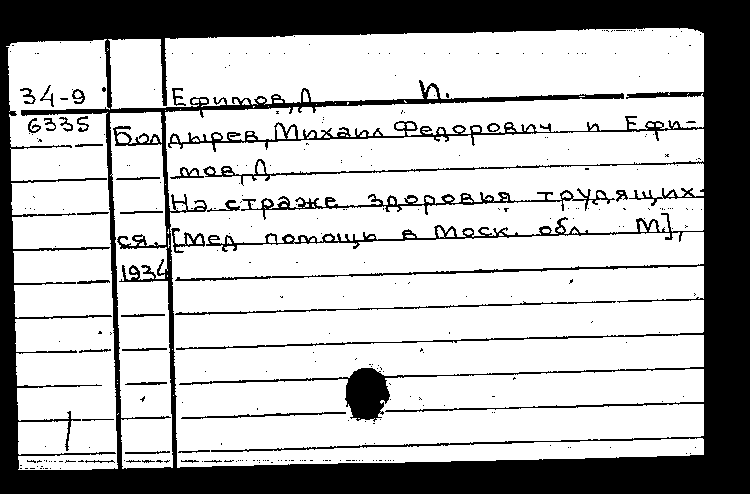 34-9 Ефимов, Д п.
6335 Болдырев, Михаил Федорович и Ефи-
мов, Д
На страже здоровья трудящих-
ся. [Мед помощь в Моск. обл. М.],
1934.